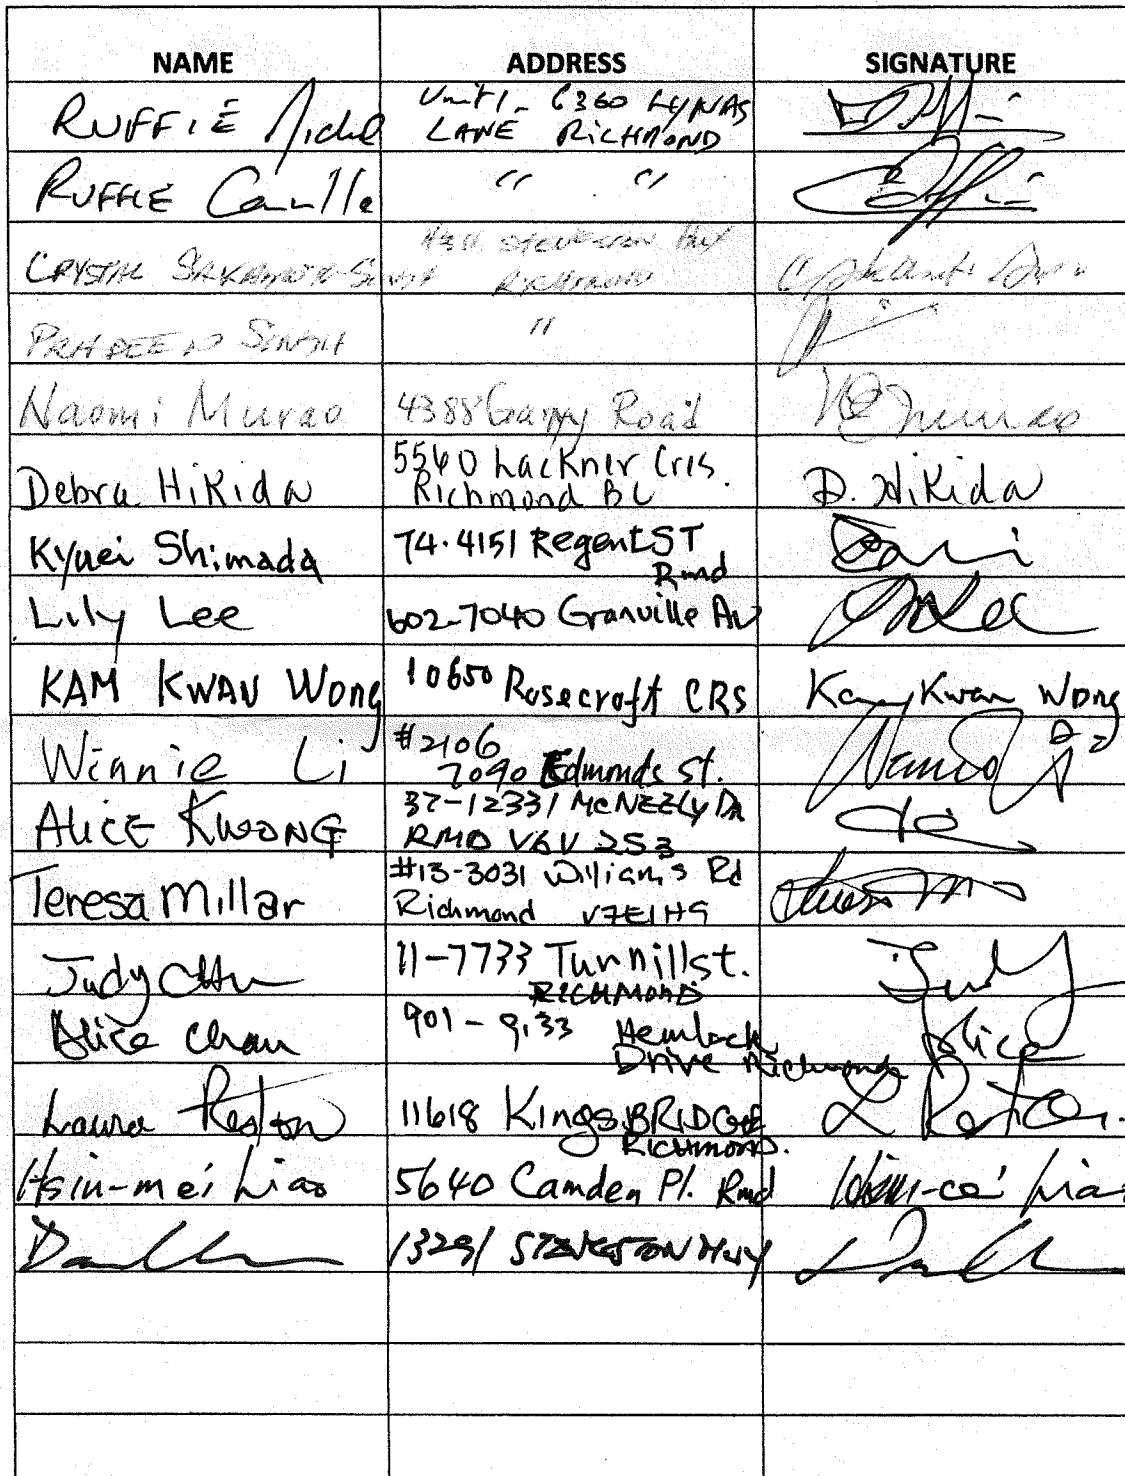 NAME ADDRESS SIGNATURE
RUFFIÉ Michel Unit 1- 6360 LYNAS
LANE RICHMOND
RUFFIE Camille " "
CRYSTAL RICHMOND
PRADEEP SINGH "
Naomi Murao 4388 Garry Road
Debra Hikida 5540 Lackner Cres. D. Hikida
Richmond BC
Kyuei Shimada 74-4151 Regent ST
Rmd
Lily Lee 602-7040 Granville Av
KAM KWAN Wong 10650 Rosecroft CRS Kam Kwan Wong
Winnie Li #2106
7090 Edmonds St.
ALICE KWONG 37-12331 McNEELY DR
RMD V6V 2S3
Teresa Millar #13-3031 Williams Rd
Richmond V7E1H9
Judy Chu 11-7733 Turnill st. Judy
RICHMOND
Alice Chan 901 - Hemlock Alice
Drive Richmond
Laura Reston 11618 KingsBRIDGE L Reston
RICHMOND.
Hsin-mei Liao 5640 Camden Pl. Rmd Liao
13291 STEVESTON Hwy